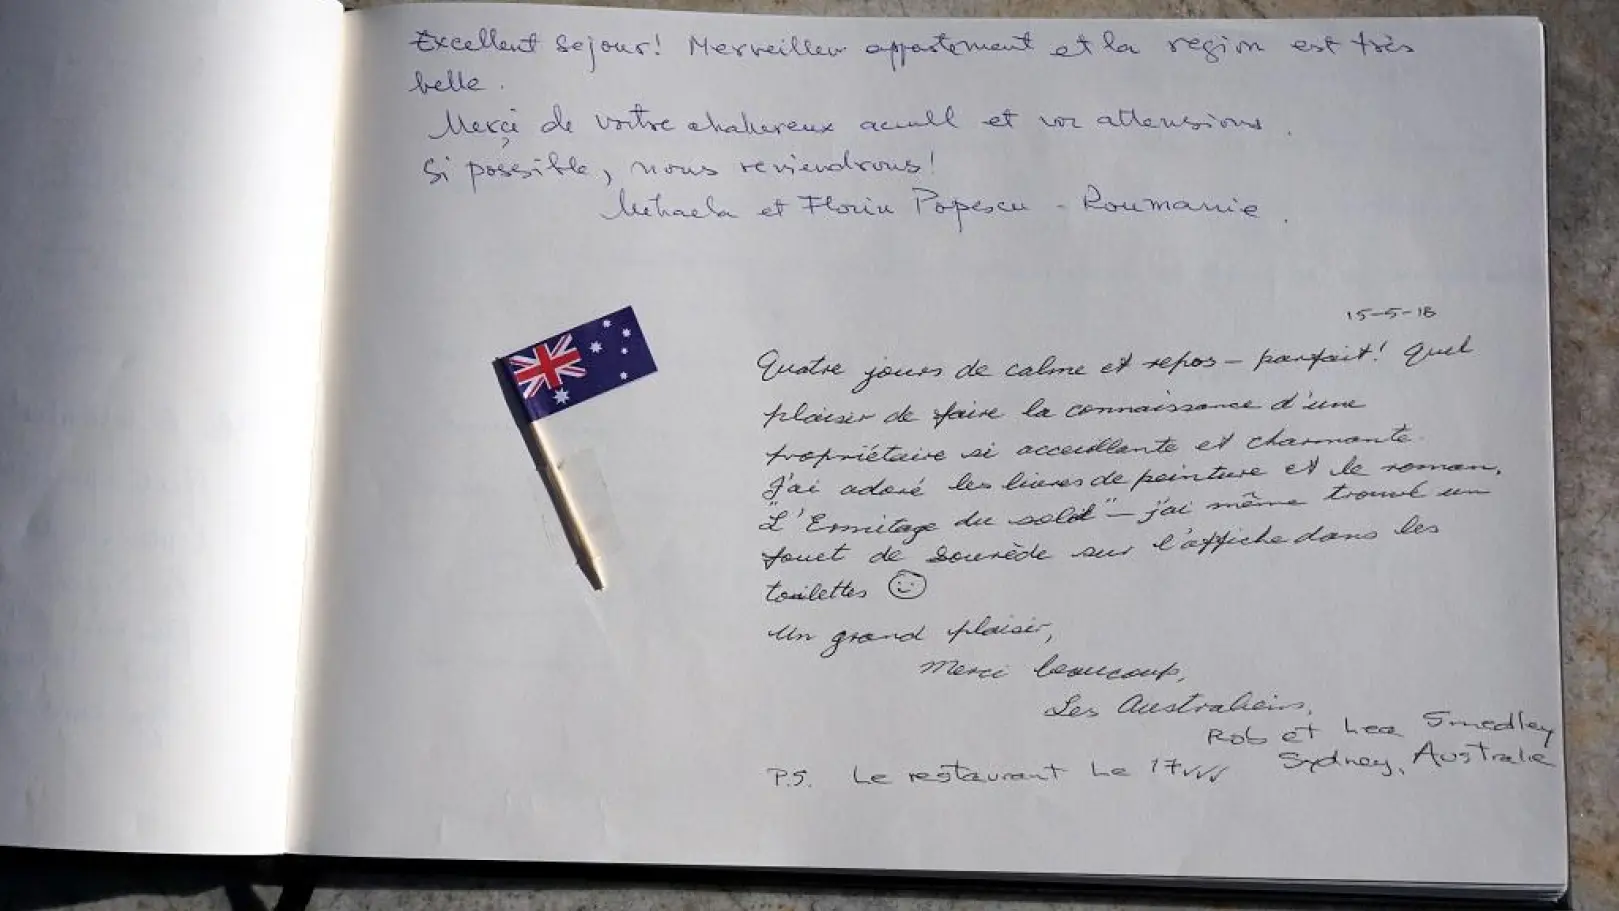 Excellent sejour! Merveilleux appartement et la region est très
belle.
Merci de votre chalereux acuell et vos attensions.
Si possible, nous reviendrons!
Mihaela et Florin Popescu - Roumanie.
15-5-18
Quatre jours de calme et repos – parfait! Quel
plaisir de faire la connaissance d'une
propriétaire si acceuillante et charmante.
J'ai adoré les livres de peinture et le roman,
"L'Ermitage du soleil" – j'ai même trouvé un
jouet de Sourède sur l'affiche dans les
toilettes
Un grand plaisir,
Merci beaucoup,
Les Australiens,
Rob et Lea Smedley
Sydney, Australie
P.S. Le restaurant Le 17 ✓✓✓